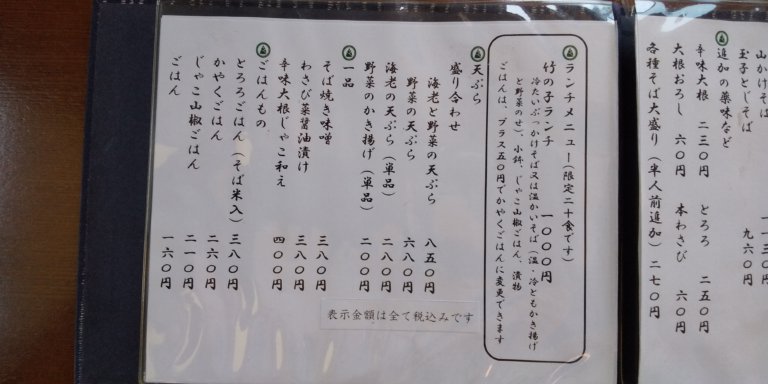 山かけそば 一一三〇円
玉子とじそば 九六〇円
追加の薬味など
辛味大根 二三〇円 とろろ 二五〇円
大根おろし 六〇円 本わさび 六〇円
各種そば大盛り（半人前追加）二七〇円
ランチメニュー（限定二十食です）
竹の子ランチ 一〇〇〇円
冷たいぶっかけそば又は温かいそば（温・冷ともかき揚げ
と野菜のせ）、小鉢、じゃこ山椒ごはん、漬物
ごはんは、プラス五〇円でかやくごはんに変更できます
天ぷら
盛り合わせ
海老と野菜の天ぷら 八五〇円
野菜の天ぷら 六八〇円
海老の天ぷら（単品） 二八〇円
野菜のかき揚げ（単品） 二〇〇円
一品
そば焼き味噌 三八〇円
わさび菜醤油漬け 三八〇円
辛味大根じゃこ和え 四〇〇円
ごはんもの
とろろごはん（そば米入） 三八〇円
かやくごはん 二六〇円
じゃこ山椒ごはん 二一〇円
ごはん 一六〇円
表示金額は全て税込みです